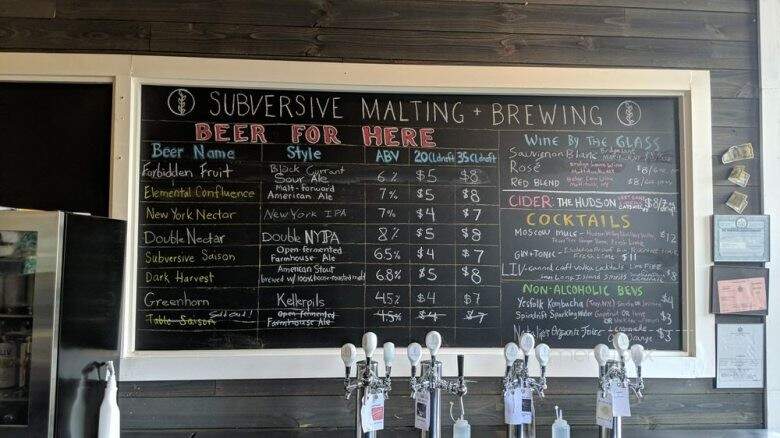 SUBVERSIVE MALTING + BREWING
BEER FOR HERE
Beer Name Style ABV 20CLdraft 35CLdraft
Forbidden Fruit Black Currant Sour Ale 6% $5 $8
Elemental Confluence Malt-forward American Ale 7% $5 $8
New York Nectar New York IPA 7% $4 $7
Double Nectar Double NYIPA 8% $5 $8
Subversive Saison Open-fermented Farmhouse Ale 6.5% $4 $7
Dark Harvest American Stout brewed w/ 6.8% $5 $8
Greenhorn Kellerpils 4.5% $4 $7
Table Saison Sold out! Open-fermented Farmhouse Ale 4.5% $4 $7
WINE BY THE GLASS
Sauvignon Blanc
Rosé $8
RED BLEND $8
CIDER THE HUDSON
COCKTAILS
MOSCOW MULE $12
GIN + TONIC $11
canned craft vodka cocktails $8
NON-ALCOHOLIC BEVS
Yesfolk Kombucha $4
Spindrift Sparkling Water $3
Natalie's Organic Juice Lemonade Orange $3